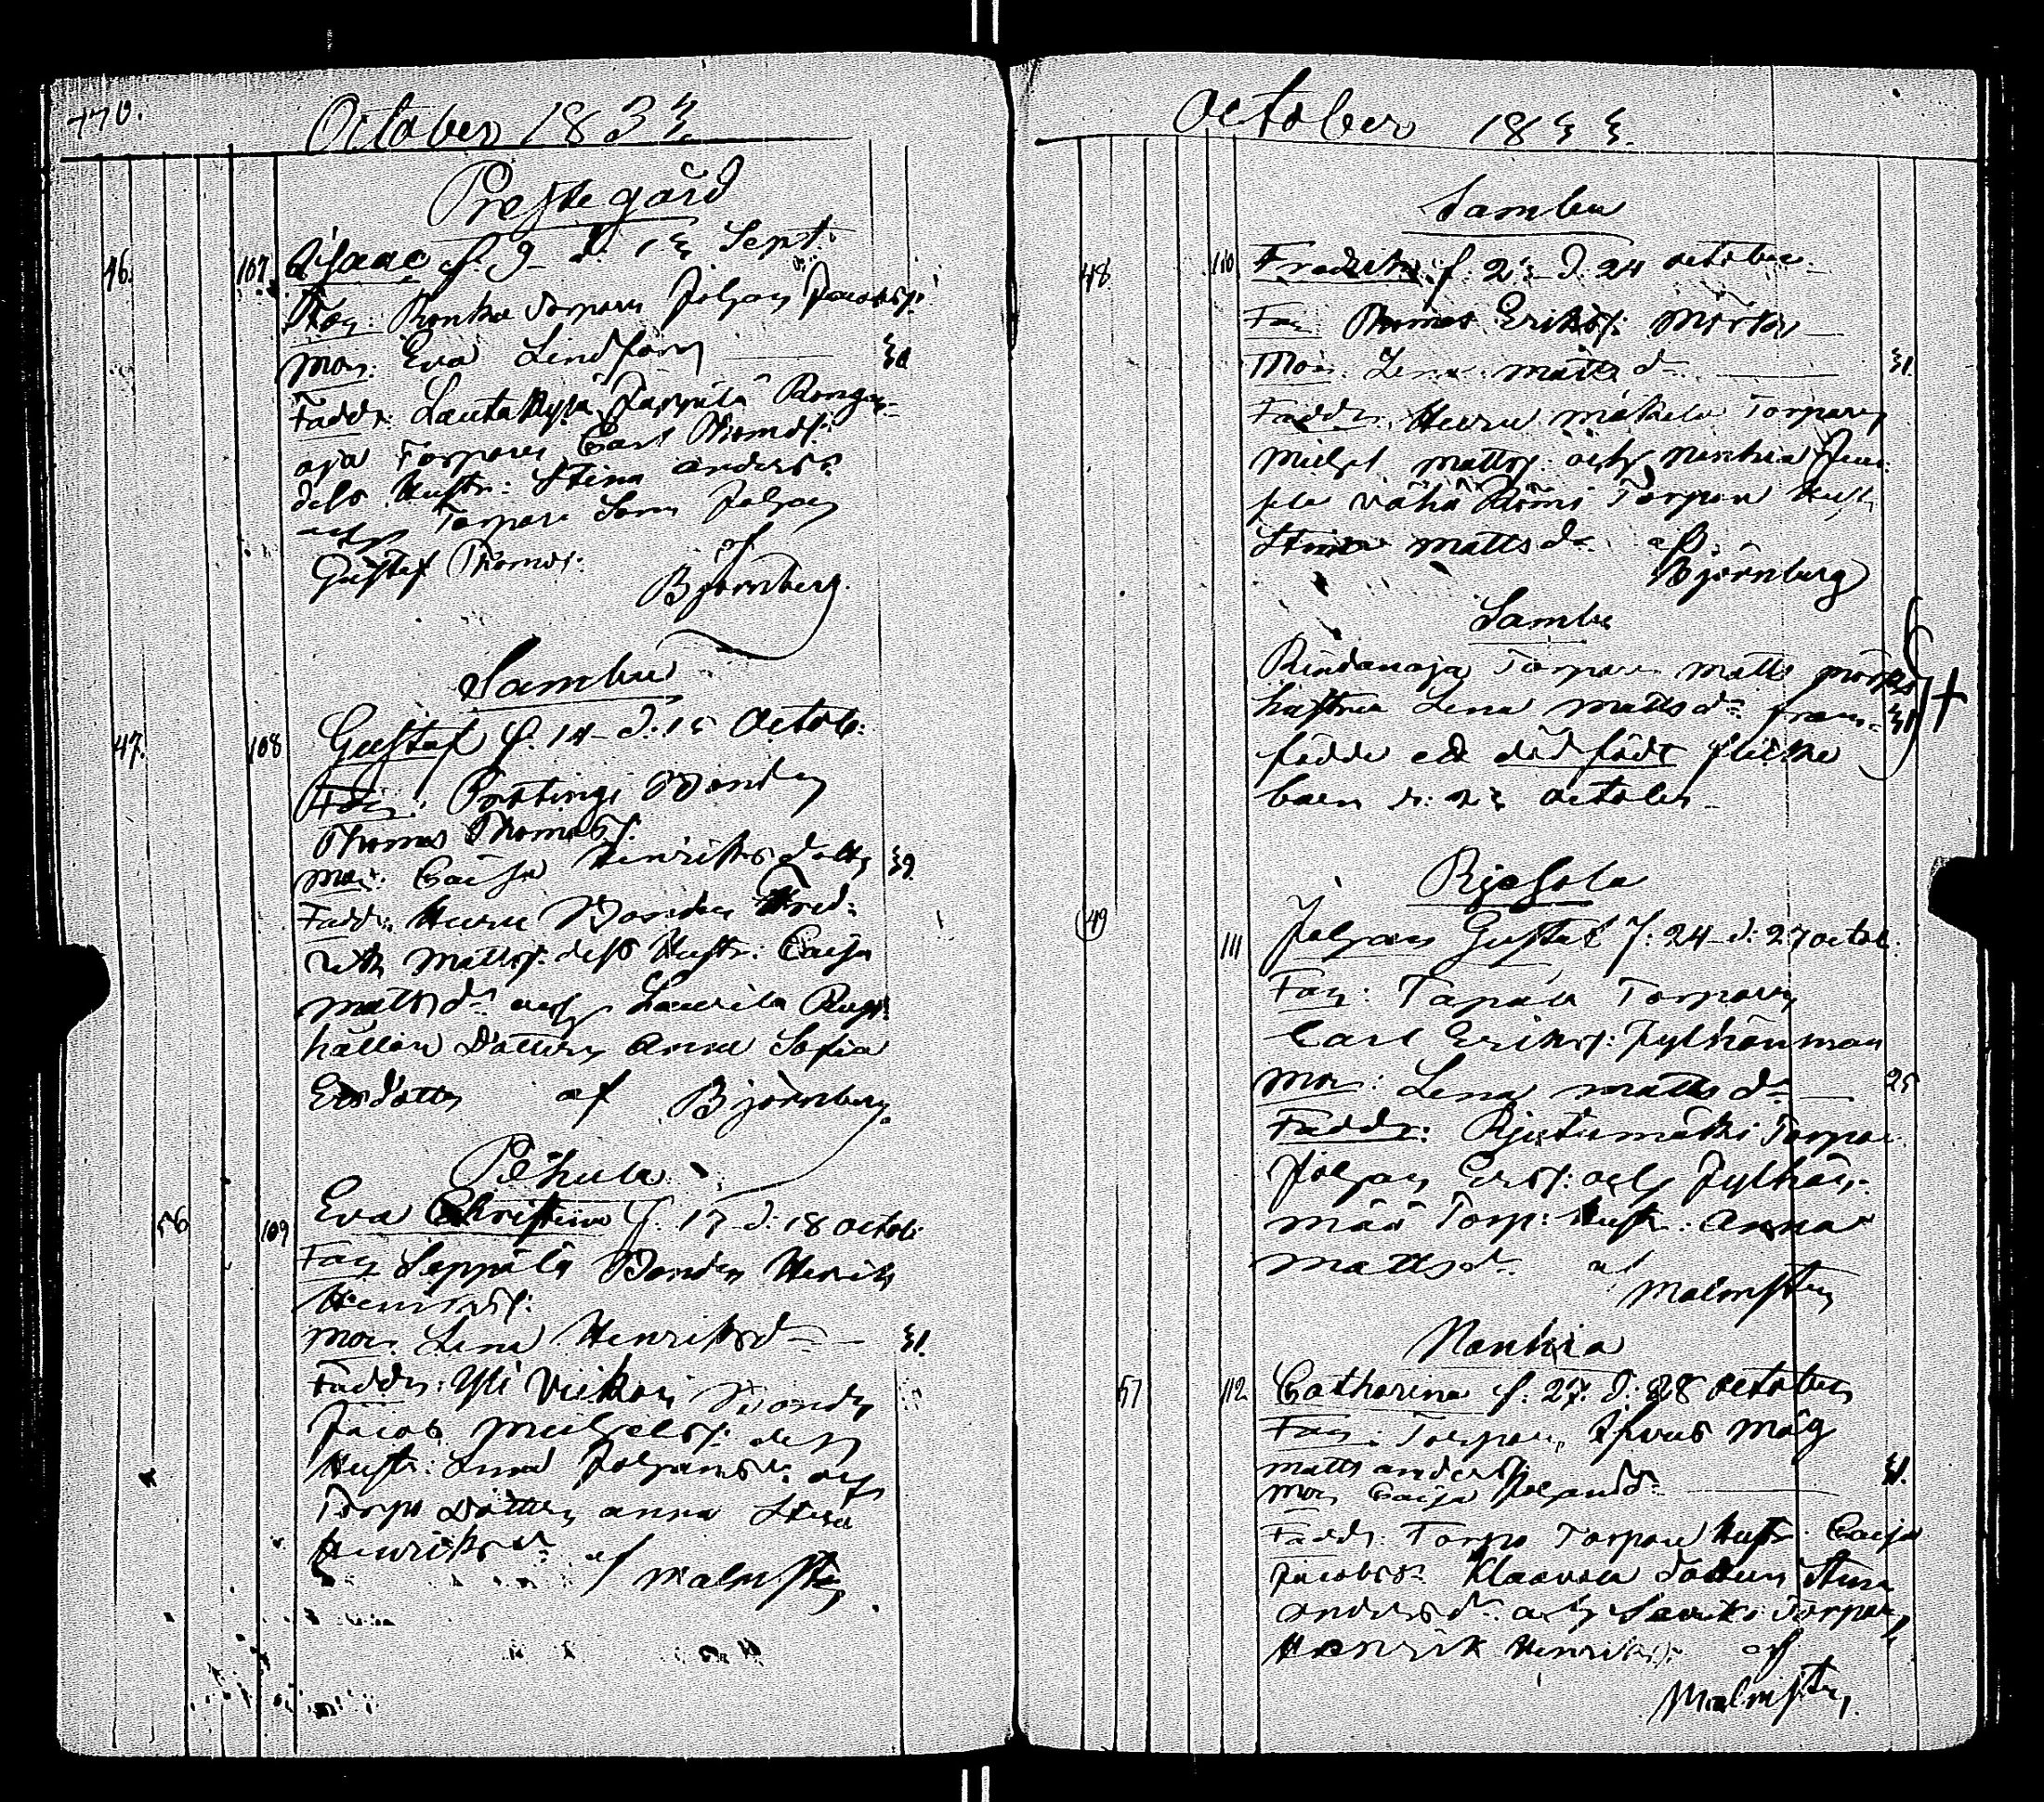 770.
October 1833.
Prestegård
46. 107 Isaac f. 9 d. 13 Sept:
Far: Ronka Torparn Johan Jacobss:
Mor: Eva Lindfors 30
Faddr: Lautakylä Jaṗpilä
oja Torparn Carl Thomass:
dess Hustr: Stina Anders d:r
och Torpare Son Johan
Gustaf Thomass:
af
Björnberg.
Sambu
47. 108 Gustaf f. 14 d. 15 Octob:
Far: Bonden
Thomas Thomass:
Mor: Caisa Henriksdotter 39.
Faddr: Huru Bonden Fred:
rik Mattss: dess Hustr: Caisa
Matts d:r och Laurila
hållare Dottern Anna Sofia
Ersdotter af Björnberg.
Pehula
56 109 Eva Christina f. 17 d. 18 octob:
Far Seppälä Bonden Henrik
Henrikss:
Mor Lena Henriksd:r 31.
Faddr: Yli Viikari Bonden
Jacob Michelss: dess
Hustr: Lena Johansd:r och
Torpo Dottern Anna Stina
Henriksd:r af Malmsten
October 1833.
Sambu
48. 110 Fredrik f. 23 d. 24 october
Far Thomas Erikss: Mörsky
Mor: Lena Mattsd:r 31.
Faddr: Huru Mäkelä Torparn
Michel Mattss: och Nenkia
Vähä Römi Torpare Hustr
Stina Mattsd:r af
Björnberg
Sambu
Rindanoja Torpare Matts
hustru Lena Mattsd:r fram- 31
födde ett dödfödt flicke
barn d: 23 october
Rjesola
49 111 Johan Gustaf f: 24 d: 27 octob:
Far: Torparn
Carl Erikss: Jylhänmaa
Mor: Lena Mattsd:r 25
Faddr: Rjutumäki Torpare
Johan Erss: och Jylhän-
mää Torp: Hustr: Anna
Mattsd:r af
Malmsten
Nenkia
57 112 Catharina f. 27. d: 28 October
Far: Torpare, Måg
Matts Anderss
Mor Caisa Johansd:r
Faddr: Torpo Torpare Hustr: Caisa
Jacobsd:r Klaavola Dottern Stina
Andersd:r och Torparn
Henrik Henrikss: af
Malmsten.